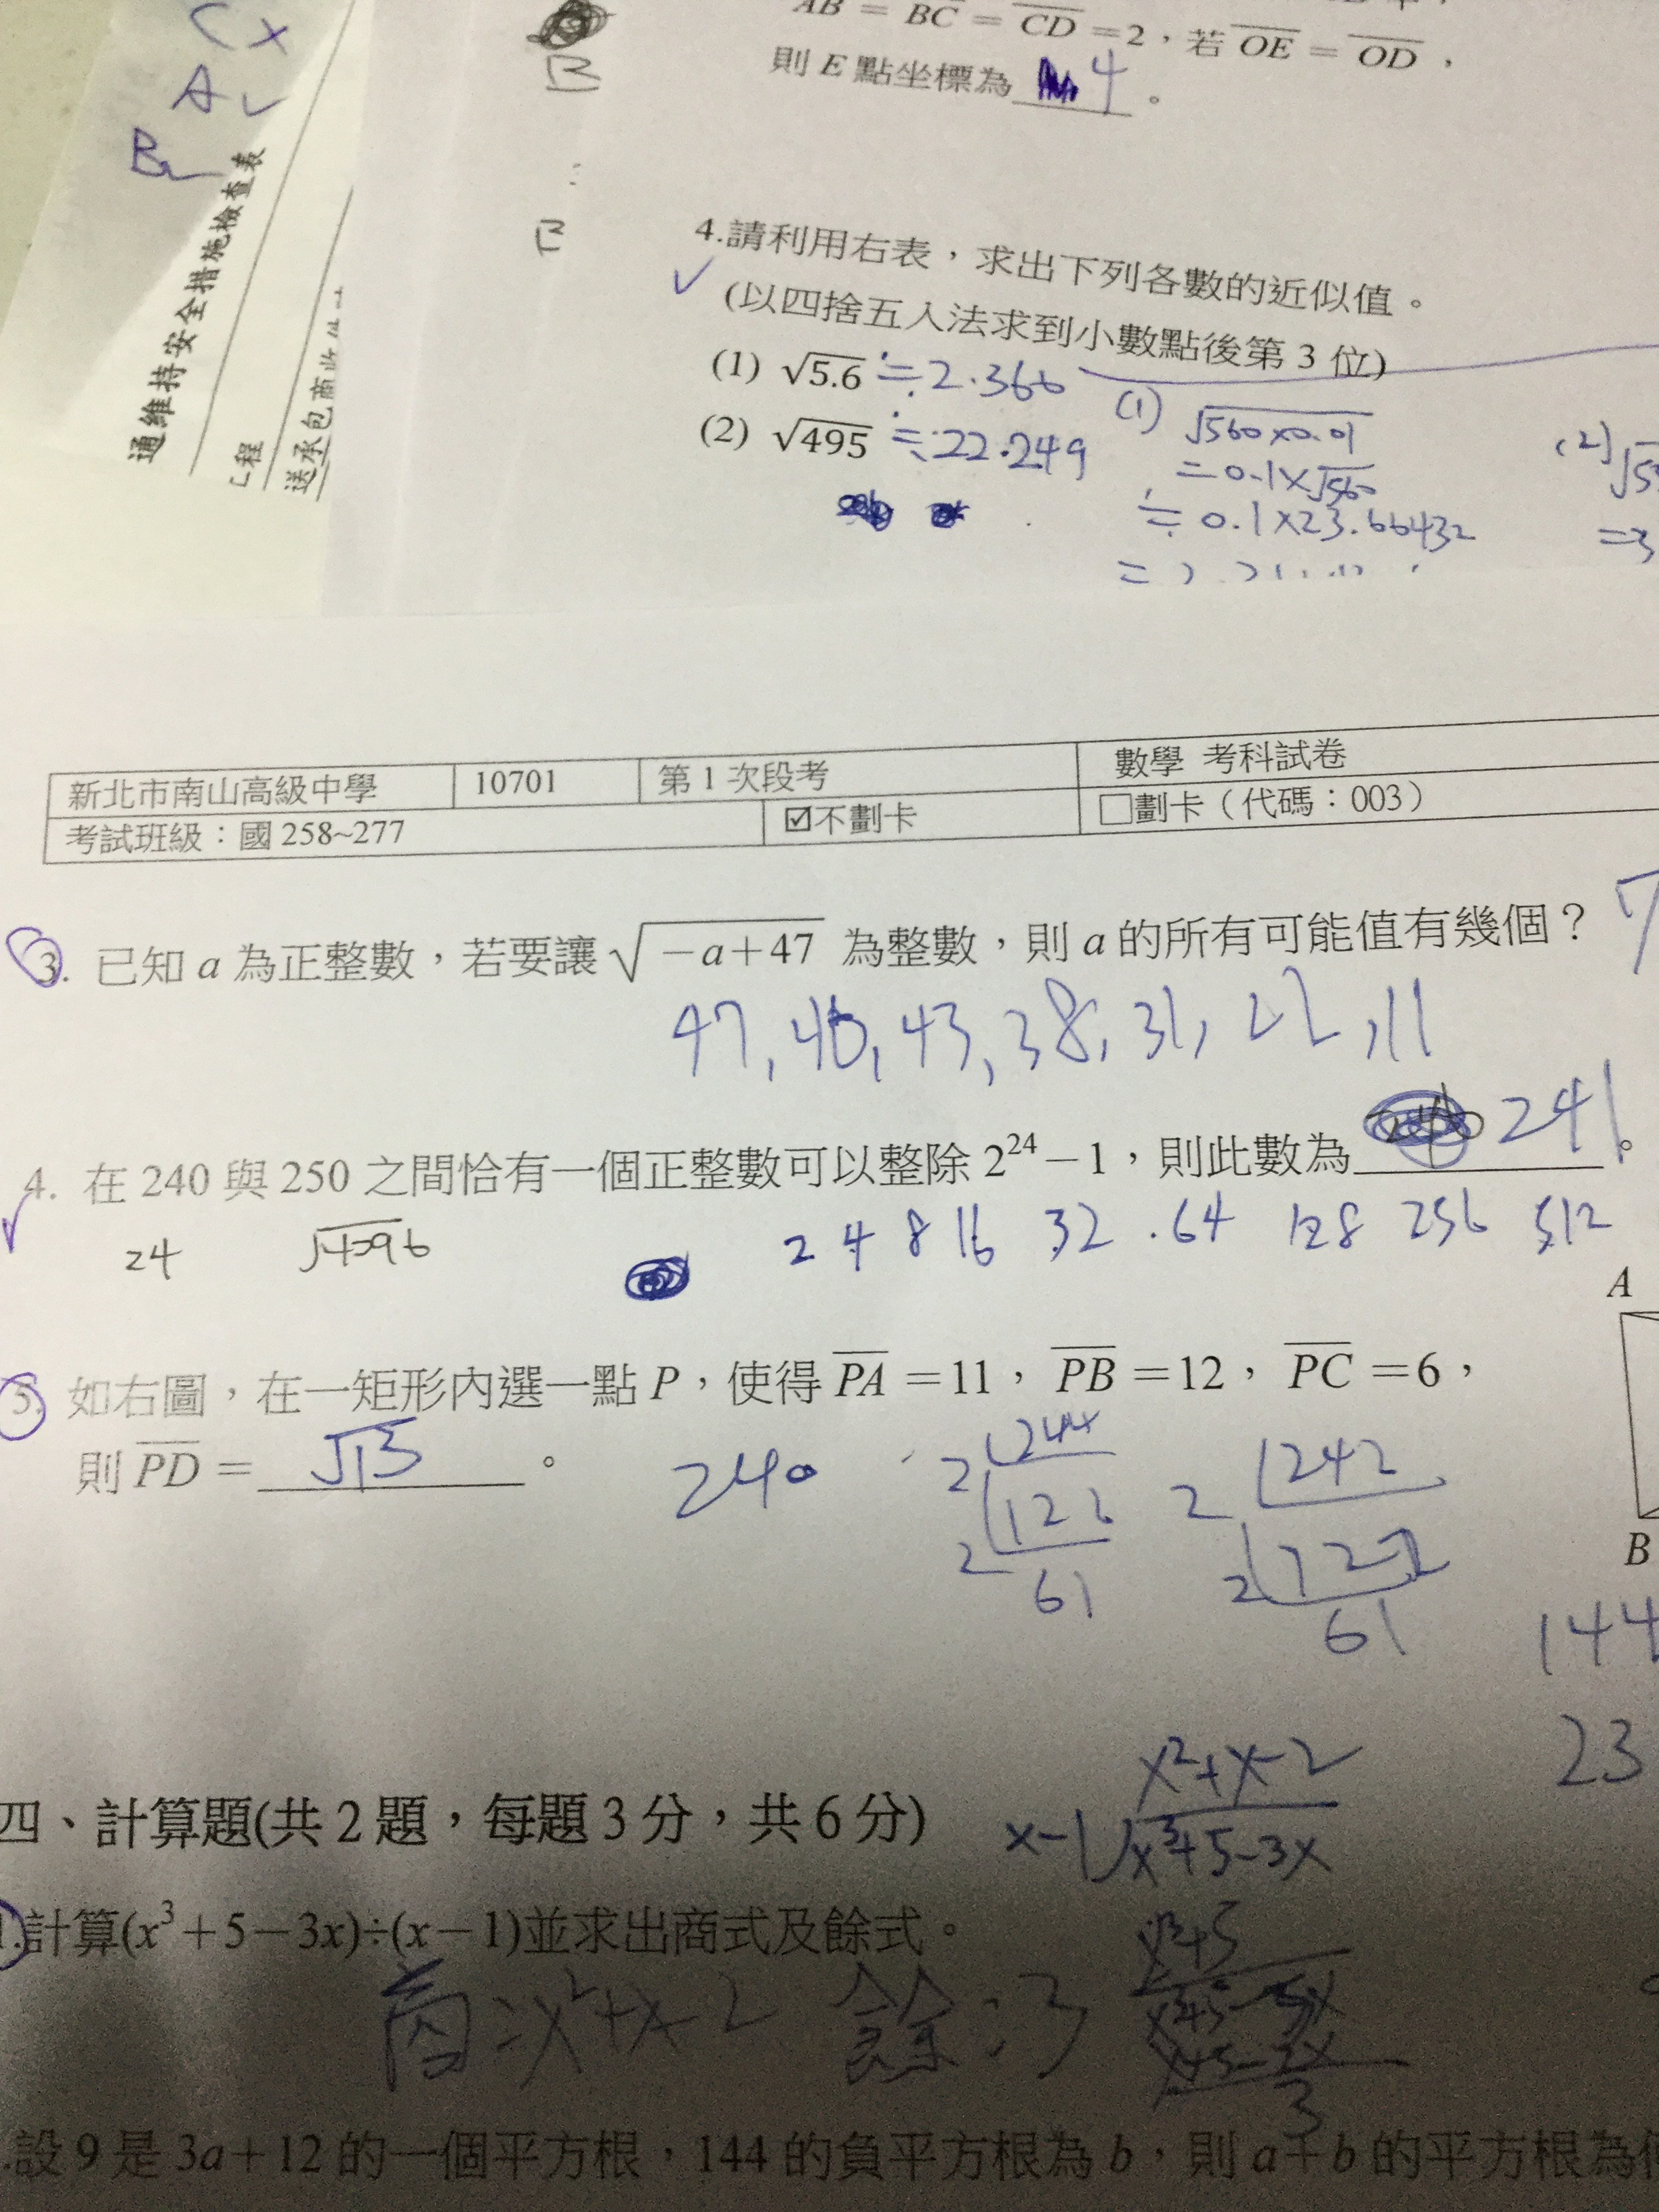 C ×
A ✓
B
B
通維持安全措施檢查表
程
送承包商
AB = BC = CD = 2，若 OE = OD，
則 E 點坐標為 4 。
4.請利用右表，求出下列各數的近似值。
✓ (以四捨五入法求到小數點後第 3 位)
(1) √5.6 ≒ 2.366
(2) √495 ≒ 22.249
(1) √560×0.01
= 0.1×√560
≒ 0.1×23.66432
(2)
新北市南山高級中學 10701 第 1 次段考 數學 考科試卷
考試班級：國 258~277 ☑不劃卡 □劃卡（代碼：003）
3. 已知 a 為正整數，若要讓 √-a+47 為整數，則 a 的所有可能值有幾個？ 7
47, 46, 43, 38, 31, 22, 11
4. 在 240 與 250 之間恰有一個正整數可以整除 2²⁴－1，則此數為 241 。
✓ 24 √4096 2 4 8 16 32 .64 128 256 512
A
5. 如右圖，在一矩形內選一點 P，使得 PA =11， PB =12， PC =6，
則 PD = √13 。
240
2 244
2 122
61
2 242
2 122
61
B
144
23
四、計算題(共 2 題，每題 3 分，共 6 分)
x²+x-2
x-1 x³+5-3x
1.計算(x³+5－3x)÷(x－1)並求出商式及餘式。
商=x²+x-2 餘:3
3
.設 9 是 3a+12 的一個平方根，144 的負平方根為 b，則 a+b 的平方根為